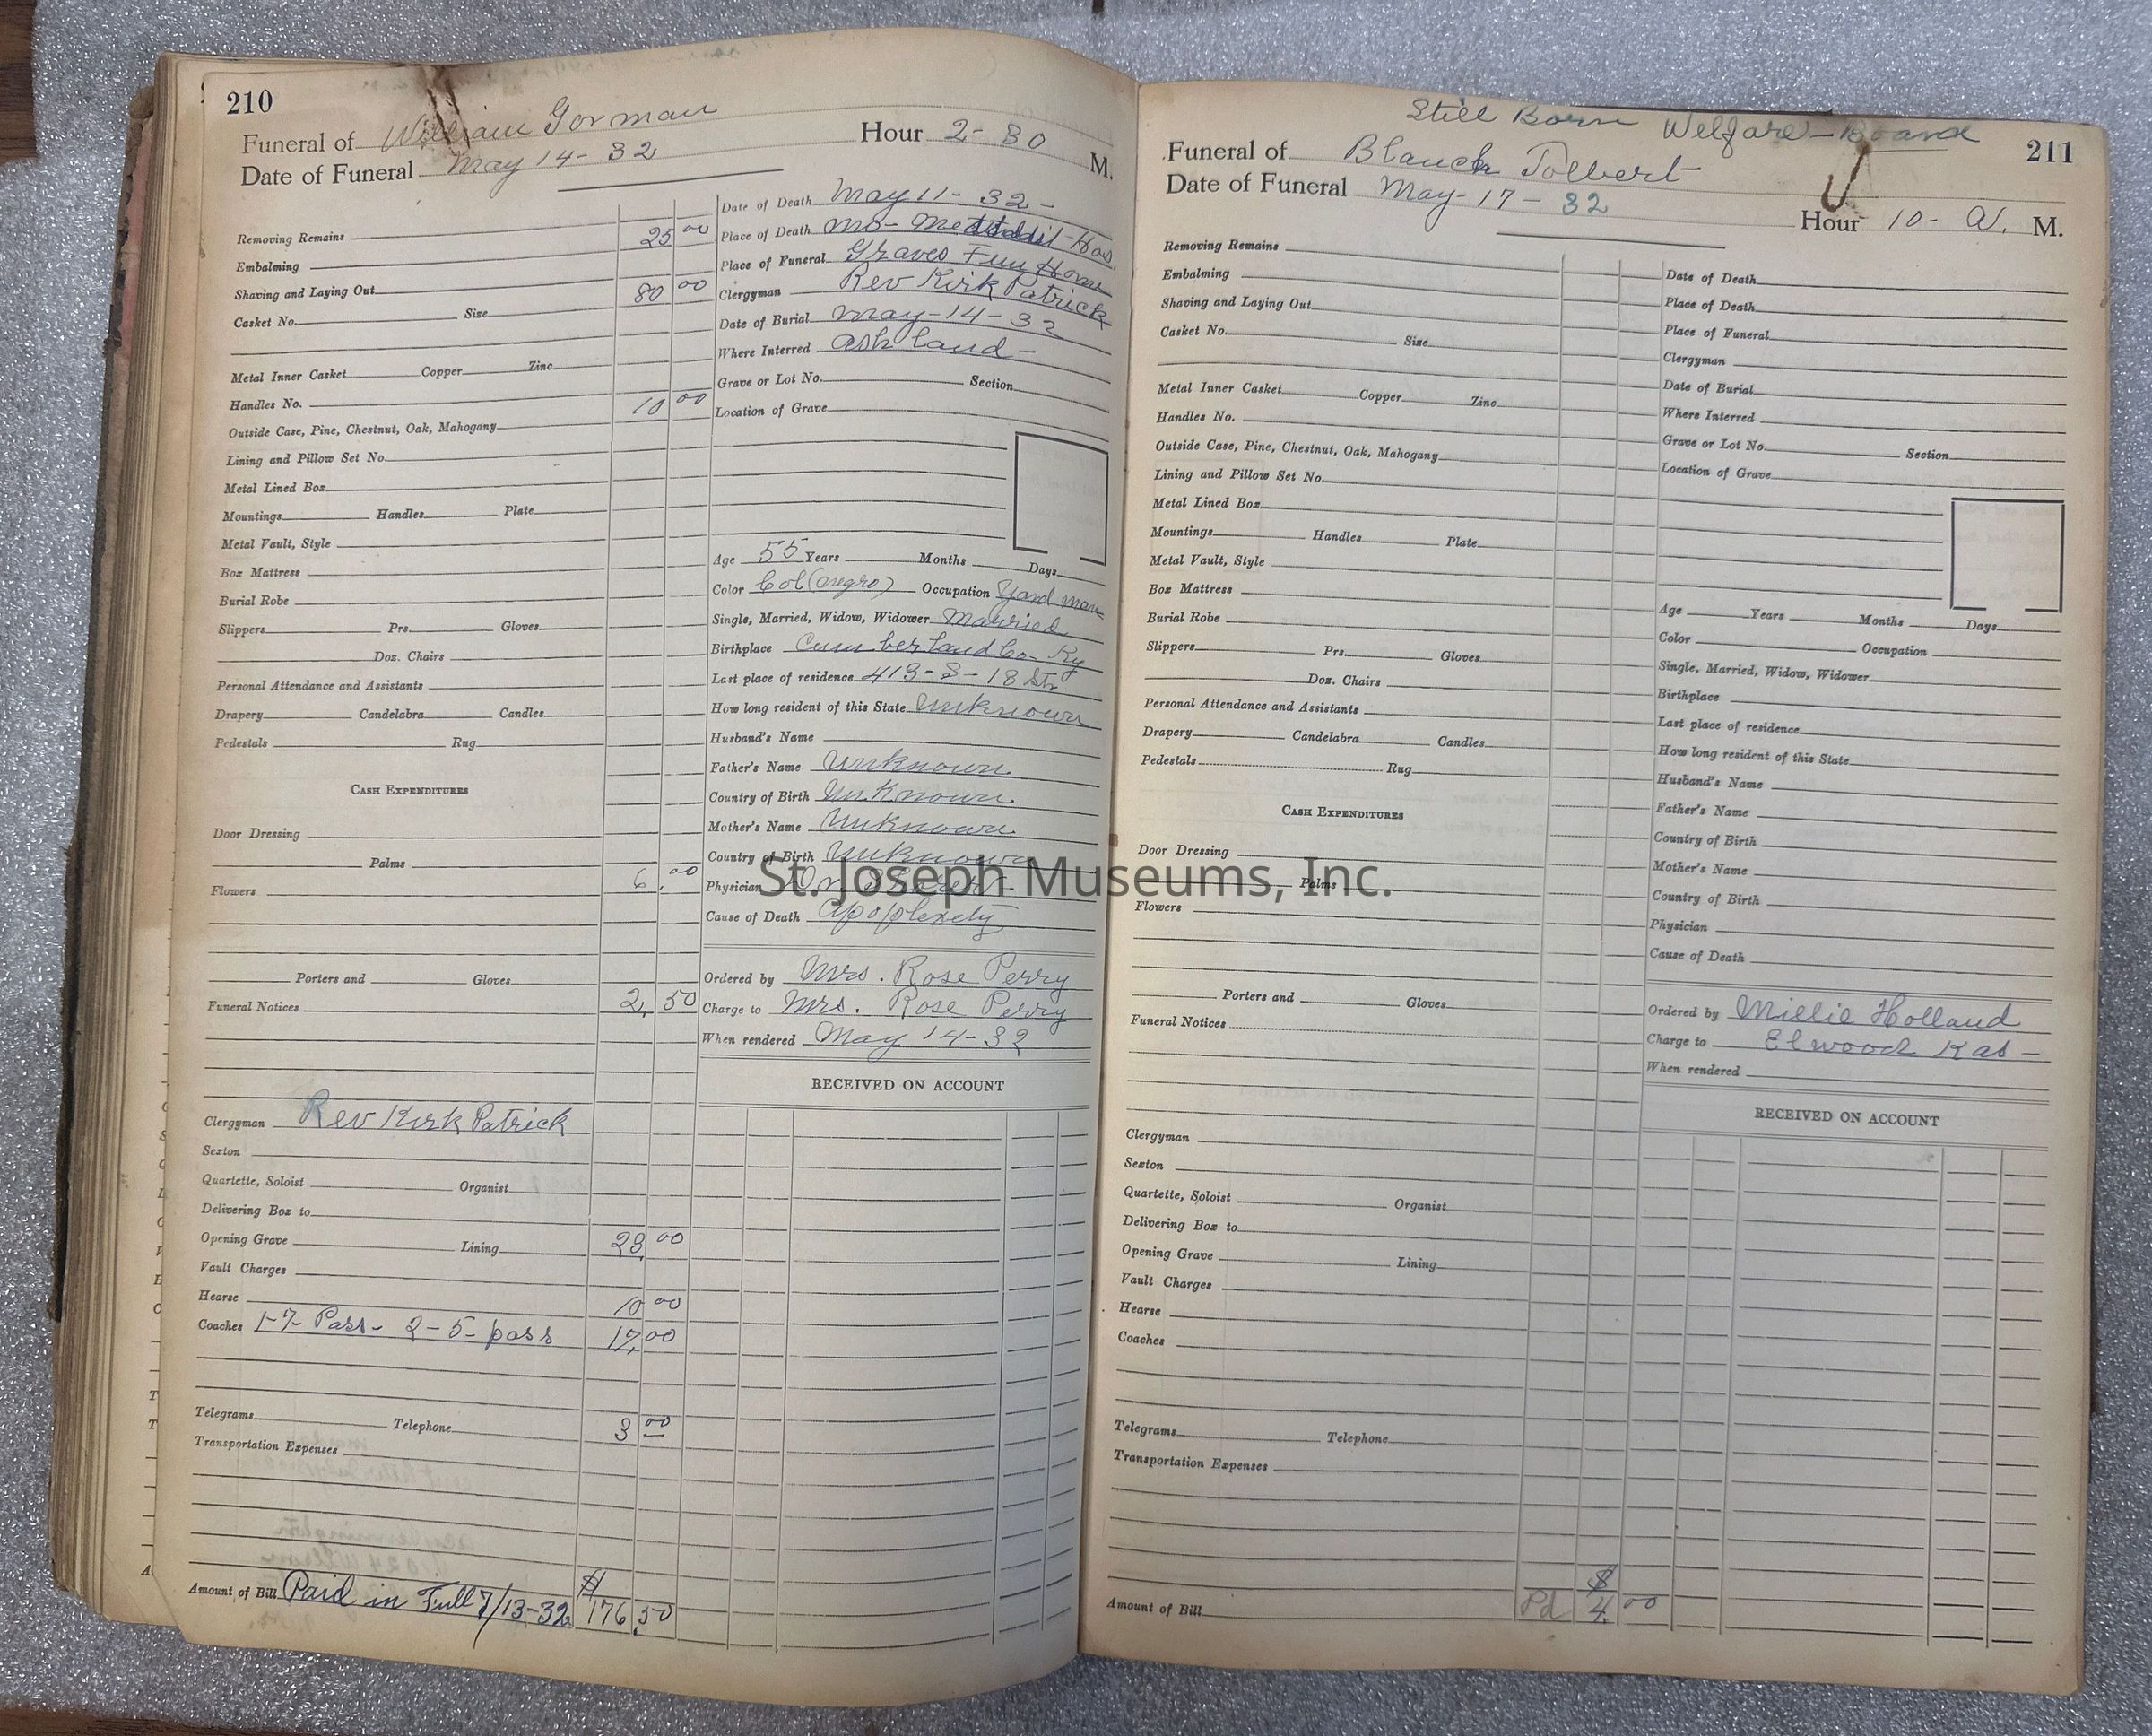 210
Funeral of William Gorman Hour 2-30 M.
Date of Funeral May 14-32
Removing Remains
Embalming 25 00
Shaving and Laying Out
Casket No. Size 80 00
Metal Inner Casket Copper Zinc
Handles No.
Outside Case, Pine, Chestnut, Oak, Mahogany 10 00
Lining and Pillow Set No.
Metal Lined Box
Mountings Handles Plate
Metal Vault, Style
Box Mattress
Burial Robe
Slippers Prs. Gloves
Doz. Chairs
Personal Attendance and Assistants
Drapery Candelabra Candles
Pedestals Rug
CASH EXPENDITURES
Door Dressing
Palms
Flowers 6.00
Porters and Gloves
Funeral Notices 2.50
Clergyman Rev Kirk Patrick
Sexton
Quartette, Soloist Organist
Delivering Box to
Opening Grave Lining 23.00
Vault Charges
Hearse 10 00
Coaches 1-7 Pass- 2-5-pass 17.00
Telegrams Telephone 3 00
Transportation Expenses
Amount of Bill Paid in Full 7/13-32 $176.50
Date of Death May 11-32-
Place of Death Mo- Hos.
Place of Funeral Graves Fun Home
Clergyman Rev Kirk Patrick
Date of Burial May-14-32
Where Interred Ashland-
Grave or Lot No. Section
Location of Grave
Age 55 Years Months Days
Color Col (negro) Occupation Yard man
Single, Married, Widow, Widower Married
Birthplace Cumberland Co- Ky
Last place of residence 413-S-18 Str
How long resident of this State Unknown
Husband's Name
Father's Name Unknown
Country of Birth Unknown
Mother's Name Unknown
Country of Birth Unknown
Physician
Cause of Death apoplexety
Ordered by Mrs. Rose Perry
Charge to Mrs. Rose Perry
When rendered May 14-32
RECEIVED ON ACCOUNT
St. Joseph Museums, Inc.
Still Born Welfare-Board
211
Funeral of Blanch Tolbert
Date of Funeral May-17-32
Hour 10- A. M.
Removing Remains
Embalming
Shaving and Laying Out
Casket No. Size
Metal Inner Casket Copper Zinc
Handles No.
Outside Case, Pine, Chestnut, Oak, Mahogany
Lining and Pillow Set No.
Metal Lined Box
Mountings Handles Plate
Metal Vault, Style
Box Mattress
Burial Robe
Slippers Prs. Gloves
Doz. Chairs
Personal Attendance and Assistants
Drapery Candelabra Candles
Pedestals Rug
CASH EXPENDITURES
Door Dressing
Palms
Flowers
Porters and Gloves
Funeral Notices
Clergyman
Sexton
Quartette, Soloist Organist
Delivering Box to
Opening Grave Lining
Vault Charges
Hearse
Coaches
Telegrams Telephone
Transportation Expenses
Amount of Bill Pd $4.00
Date of Death
Place of Death
Place of Funeral
Clergyman
Date of Burial
Where Interred
Grave or Lot No. Section
Location of Grave
Age Years Months Days
Color Occupation
Single, Married, Widow, Widower
Birthplace
Last place of residence
How long resident of this State
Husband's Name
Father's Name
Country of Birth
Mother's Name
Country of Birth
Physician
Cause of Death
Ordered by Millie Holland
Charge to Elwood Kas-
When rendered
RECEIVED ON ACCOUNT